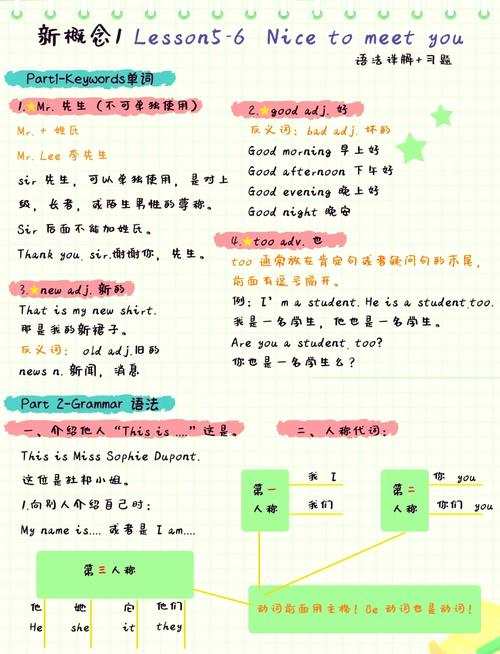 新概念1 Lesson5-6 Nice to meet you
语法详解+习题
Part1-Keywords单词
1.Mr. 先生（不可单独使用）
Mr. + 姓氏
Mr. Lee 李先生
sir 先生，可以单独使用，是对上
级，长者，或陌生男性的尊称。
Sir 后面不能加姓氏。
Thank you, sir.谢谢你，先生。
2.good adj. 好
反义词：bad adj. 坏的
Good morning 早上好
Good afternoon 下午好
Good evening 晚上好
Good night 晚安
3.new adj. 新的
That is my new shirt.
那是我的新裙子。
反义词： old adj.旧的
news n. 新闻，消息
4.too adv. 也
too 通常放在肯定句或者疑问句的末尾，
前面有逗号隔开。
例：I'm a student. He is a student,too.
我是一名学生，他也是一名学生。
Are you a student, too?
你也是一名学生么？
Part 2-Grammar 语法
一、介绍他人“This is ....”这是。
This is Miss Sophie Dupont.
这位是杜邦小姐。
1.向别人介绍自己时：
My name is.... 或者是 I am....
二、人称代词：
第一
人称
我 I
我们
第二
人称
你 you
你们 you
第三人称
他 她 它 他们
He she it they
动词前面用主格！Be 动词也是动词！